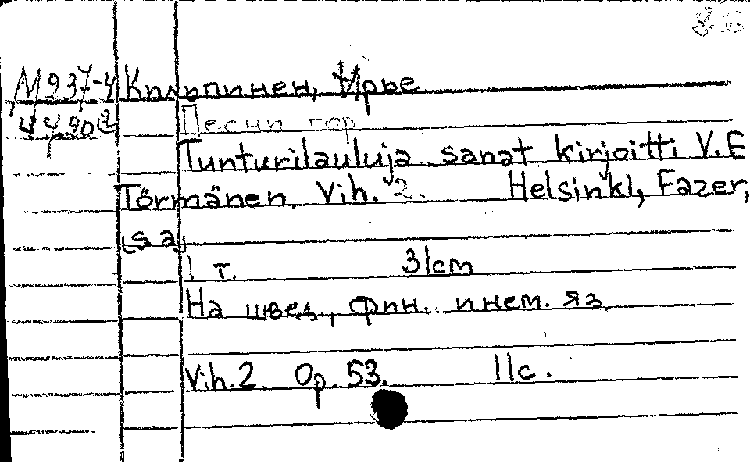 М937-4 Килпинен, Ирье
4490
Песни гор
Tunturilauluja sanat kirjoitti V.E
Törmänen. Vih. 2. Helsinki, Fazer,
[s a]
1 т. 31cm
На швед, фин. и нем. яз
Vih.2 Op. 53. 11с.